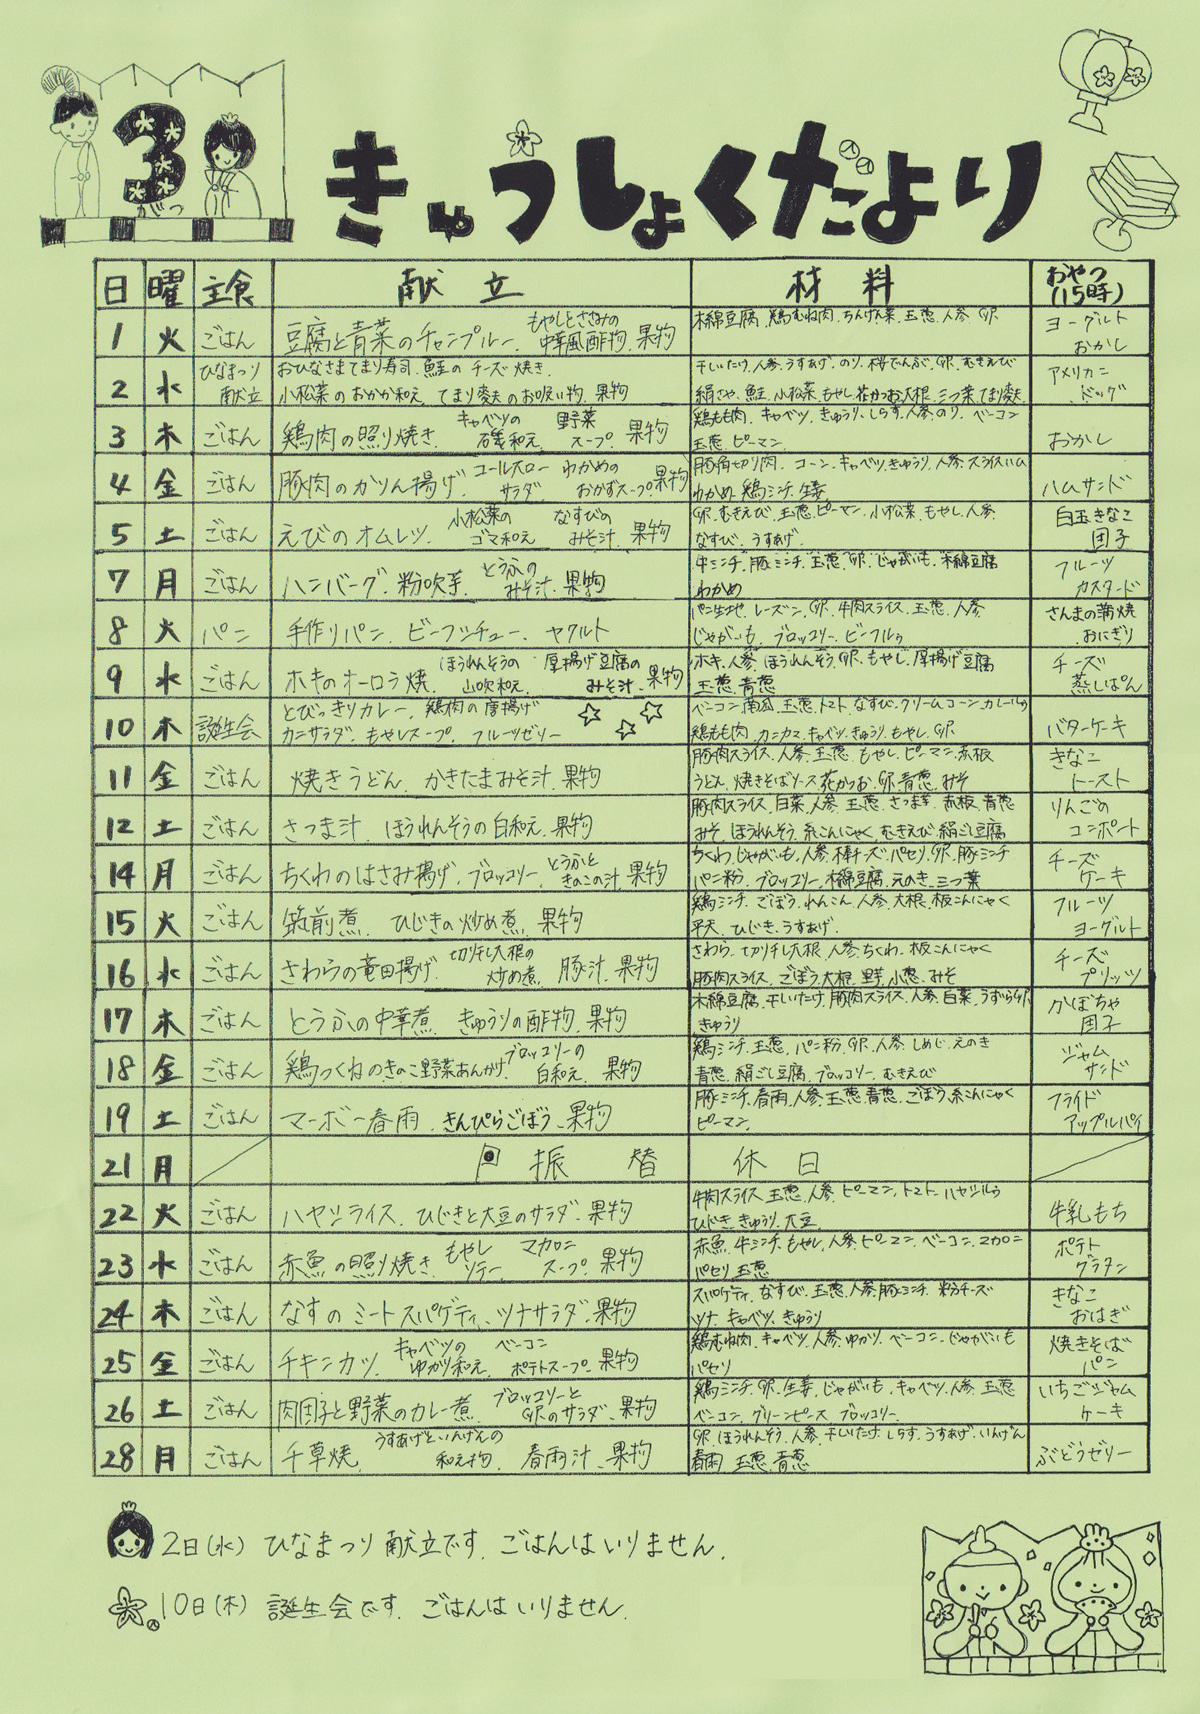 3
がつ
きゅうしょくだより
日 曜 主食 献立 材料 おやつ(15時)
1 火 ごはん 豆腐と青菜のチャンプルー、もやしとささみの中華風酢物、果物 木綿豆腐、鶏むね肉、ちんげん菜、玉葱、人参、卵 ヨーグルト おかし
2 水 ひなまつり献立 おひなさまてまり寿司、鮭のチーズ焼き、小松菜のおかか和え、てまり麩のお吸い物、果物 干しいたけ、人参、うすあげ、のり、桜でんぶ、卵、むきえび 絹さや、鮭、小松菜、もやし、花かつお、大根、三つ葉、てまり麩 アメリカンドッグ
3 木 ごはん 鶏肉の照り焼き、キャベツの磯和え、野菜スープ、果物 鶏もも肉、キャベツ、きゅうり、しらす、人参、のり、ベーコン 玉葱、ピーマン おかし
4 金 ごはん 豚肉のかりん揚げ、コールスローサラダ、わかめのおかずスープ、果物 豚角切り肉、コーン、キャベツ、きゅうり、人参、スライスハム わかめ、鶏ミンチ、生姜 ハムサンド
5 土 ごはん えびのオムレツ、小松菜のゴマ和え、なすびのみそ汁、果物 卵、むきえび、玉葱、ピーマン、小松菜、もやし、人参、なすび、うすあげ 白玉きなこ団子
7 月 ごはん ハンバーグ、粉吹芋、とうふのみそ汁、果物 牛ミンチ、豚ミンチ、玉葱、卵、じゃがいも、木綿豆腐 わかめ フルーツカスタード
8 火 パン 手作りパン、ビーフシチュー、ヤクルト パン生地、レーズン、卵、牛肉スライス、玉葱、人参 じゃがいも、ブロッコリー、ビーフルゥ さんまの蒲焼おにぎり
9 水 ごはん ホキのオーロラ焼、ほうれんそうの山吹和え、厚揚げ豆腐のみそ汁、果物 ホキ、人参、ほうれんそう、卵、もやし、厚揚げ豆腐 玉葱、青葱 チーズ蒸しぱん
10 木 誕生会 とびっきりカレー、鶏肉の唐揚げ カニサラダ、もやしスープ、フルーツゼリー ベーコン、南瓜、玉葱、トマト、なすび、クリームコーン、カレールゥ 鶏もも肉、カニカマ、キャベツ、きゅうり、もやし、卵 バターケーキ
11 金 ごはん 焼きうどん、かきたまみそ汁、果物 豚肉スライス、人参、玉葱、もやし、ピーマン、赤板 うどん、焼きそばソース、花かつお、卵、青葱、みそ きなこトースト
12 土 ごはん さつま汁、ほうれんそうの白和え、果物 豚肉スライス、白菜、人参、玉葱、さつま芋、赤板、青葱 みそ、ほうれんそう、糸こんにゃく、むきえび、絹ごし豆腐 りんごのコンポート
14 月 ごはん ちくわのはさみ揚げ、ブロッコリー、とうふときのこの汁、果物 ちくわ、じゃがいも、人参、棒チーズ、パセリ、卵、豚ミンチ パン粉、ブロッコリー、木綿豆腐、えのき、三つ葉 チーズケーキ
15 火 ごはん 筑前煮、ひじきの炒め煮、果物 鶏ミンチ、ごぼう、れんこん、人参、大根、板こんにゃく 平天、ひじき、うすあげ フルーツヨーグルト
16 水 ごはん さわらの竜田揚げ、切り干し大根の炒め煮、豚汁、果物 さわら、切り干し大根、人参、ちくわ、板こんにゃく 豚肉スライス、ごぼう、大根、里芋、小葱、みそ チーズプリッツ
17 木 ごはん とうふの中華煮、きゅうりの酢物、果物 木綿豆腐、干しいたけ、豚肉スライス、人参、白菜、うずら卵、きゅうり かぼちゃ団子
18 金 ごはん 鶏つくねのきのこ野菜あんかけ、ブロッコリーの白和え、果物 鶏ミンチ、玉葱、パン粉、卵、人参、しめじ、えのき 青葱、絹ごし豆腐、ブロッコリー、むきえび ジャムサンド
19 土 ごはん マーボー春雨、きんぴらごぼう、果物 豚ミンチ、春雨、人参、玉葱、青葱、ごぼう、糸こんにゃく ピーマン フライドアップルパイ
21 月 振替休日
22 火 ごはん ハヤシライス、ひじきと大豆のサラダ、果物 牛肉スライス、玉葱、人参、ピーマン、トマト、ハヤシルゥ ひじき、きゅうり、大豆 牛乳もち
23 水 ごはん 赤魚の照り焼き、もやしソテー、マカロニスープ、果物 赤魚、牛ミンチ、もやし、人参、ピーマン、ベーコン、マカロニ パセリ、玉葱 ポテトグラタン
24 木 ごはん なすのミートスパゲティ、ツナサラダ、果物 スパゲティ、なすび、玉葱、人参、豚ミンチ、粉チーズ ツナ、キャベツ、きゅうり きなこおはぎ
25 金 ごはん チキンカツ、キャベツのゆかり和え、ベーコンポテトスープ、果物 鶏むね肉、キャベツ、人参、ゆかり、ベーコン、じゃがいも パセリ 焼きそばパン
26 土 ごはん 肉団子と野菜のカレー煮、ブロッコリーと卵のサラダ、果物 鶏ミンチ、卵、生姜、じゃがいも、キャベツ、人参、玉葱 ベーコン、グリーンピース、ブロッコリー いちごジャムケーキ
28 月 ごはん 千草焼、うすあげといんげんの和え物、春雨汁、果物 卵、ほうれんそう、人参、干しいたけ、しらす、うすあげ、いんげん 春雨、玉葱、青葱 ぶどうゼリー
2日(水) ひなまつり献立です。ごはんはいりません。
10日(木) 誕生会です。ごはんはいりません。